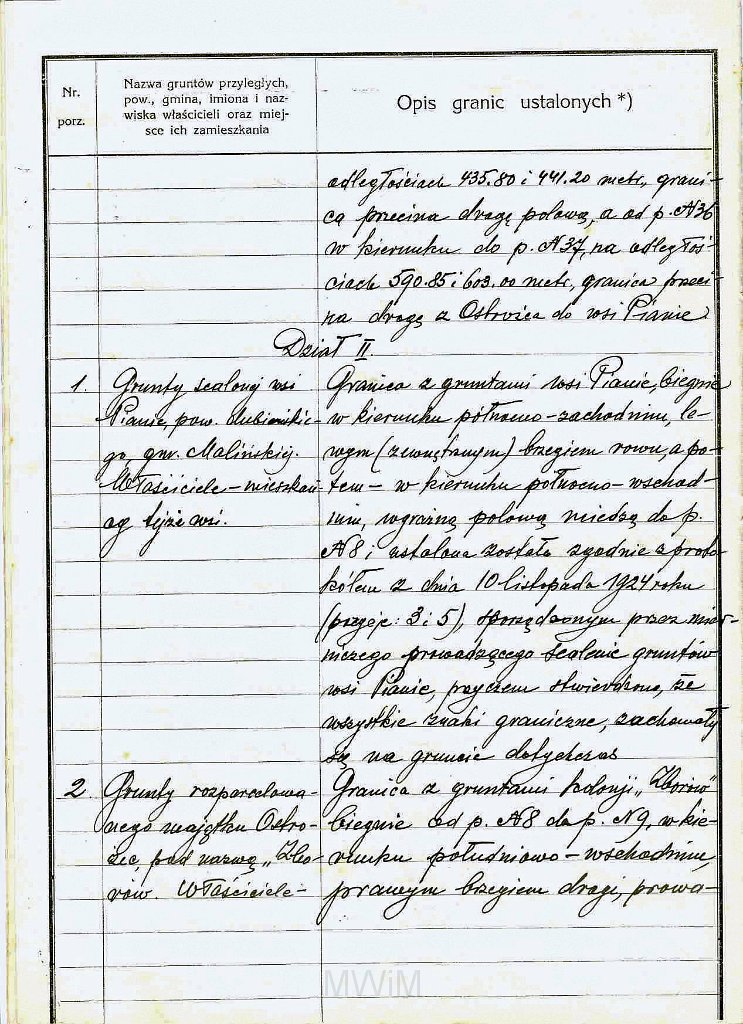 Nr.
porz.
Nazwa gruntów przyległych,
pow., gmina, imiona i naz-
wiska właścicieli oraz miej-
sce ich zamieszkania
Opis granic ustalonych *)
odległościach 435.80 i 441.20 metr., grani-
cą przecina drogę polową, a od p. N36
w kierunku do p. N37, na odległoś-
ciach 590.85 i 603.00 metr., granica przeci-
na drogę z Ostrożca do wsi Pianie
Dział II.
1.
Grunty scalonej wsi
Pianie, pow. dubieńskie-
go, gm. Malińskiej.
Właściciele - mieszkań-
cy tejże wsi.
Granica z gruntami wsi Pianie, biegnie
w kierunku północno-zachodnim, le-
wym (zewnętrznym) brzegiem rowu, a po-
tem - w kierunku północno-wschod-
nim, wyraźną polową miedzą do p.
N8 i ustalona została zgodnie z proto-
kółem z dnia 10 listopada 1924 roku
(pozycje: 3 i 5), sporządzonym przez mier-
niczego prowadzącego scalenie gruntów
wsi Pianie, przyczem stwierdzono, że
wszystkie znaki graniczne, zachowały
się na gruncie dotychczas
2.
Grunty rozparcelowa-
nego majątku Ostro-
żec, pod nazwą „Zbo-
rów". Właściciele -
Granica z gruntami kolonji „Zborów"
biegnie od p. N8 do p. N9, w kie-
runku południowo-wschodnim,
prawym brzegiem drogi, prowa-
MWiM